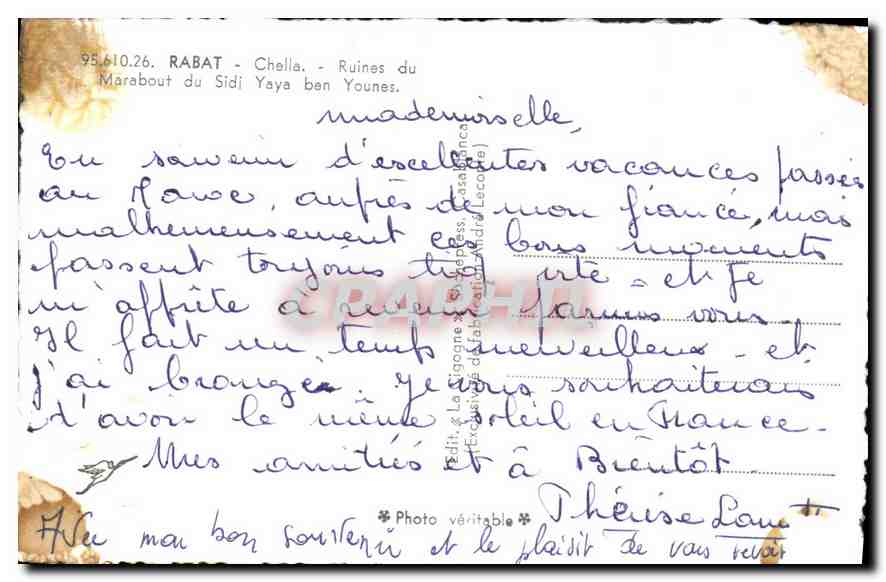 95.610.26. RABAT - Chella. - Ruines du
Marabout du Sidi Yaya ben Younes.
mademoiselle,
En souvenir d'excellentes vacances passées
au Maroc, auprès de mon fiancé, mais
malheureusement ces bons moments
passent toujours très vite - et je
m'apprête à revenir parmis vous.
Il fait un temps merveilleux - et
j'ai bronzée. Je vous souhaiterais
d'avoir le même soleil en France.
Mes amitiés et à Bientôt.
Thérèse
Avec mon bon souvenir et le plaisir de vous revoir
✽ Photo véritable ✽
Edit. « La Cigogne » Casablanca
(Exclusivité de fabrication André Leconte)
CPAPHIL